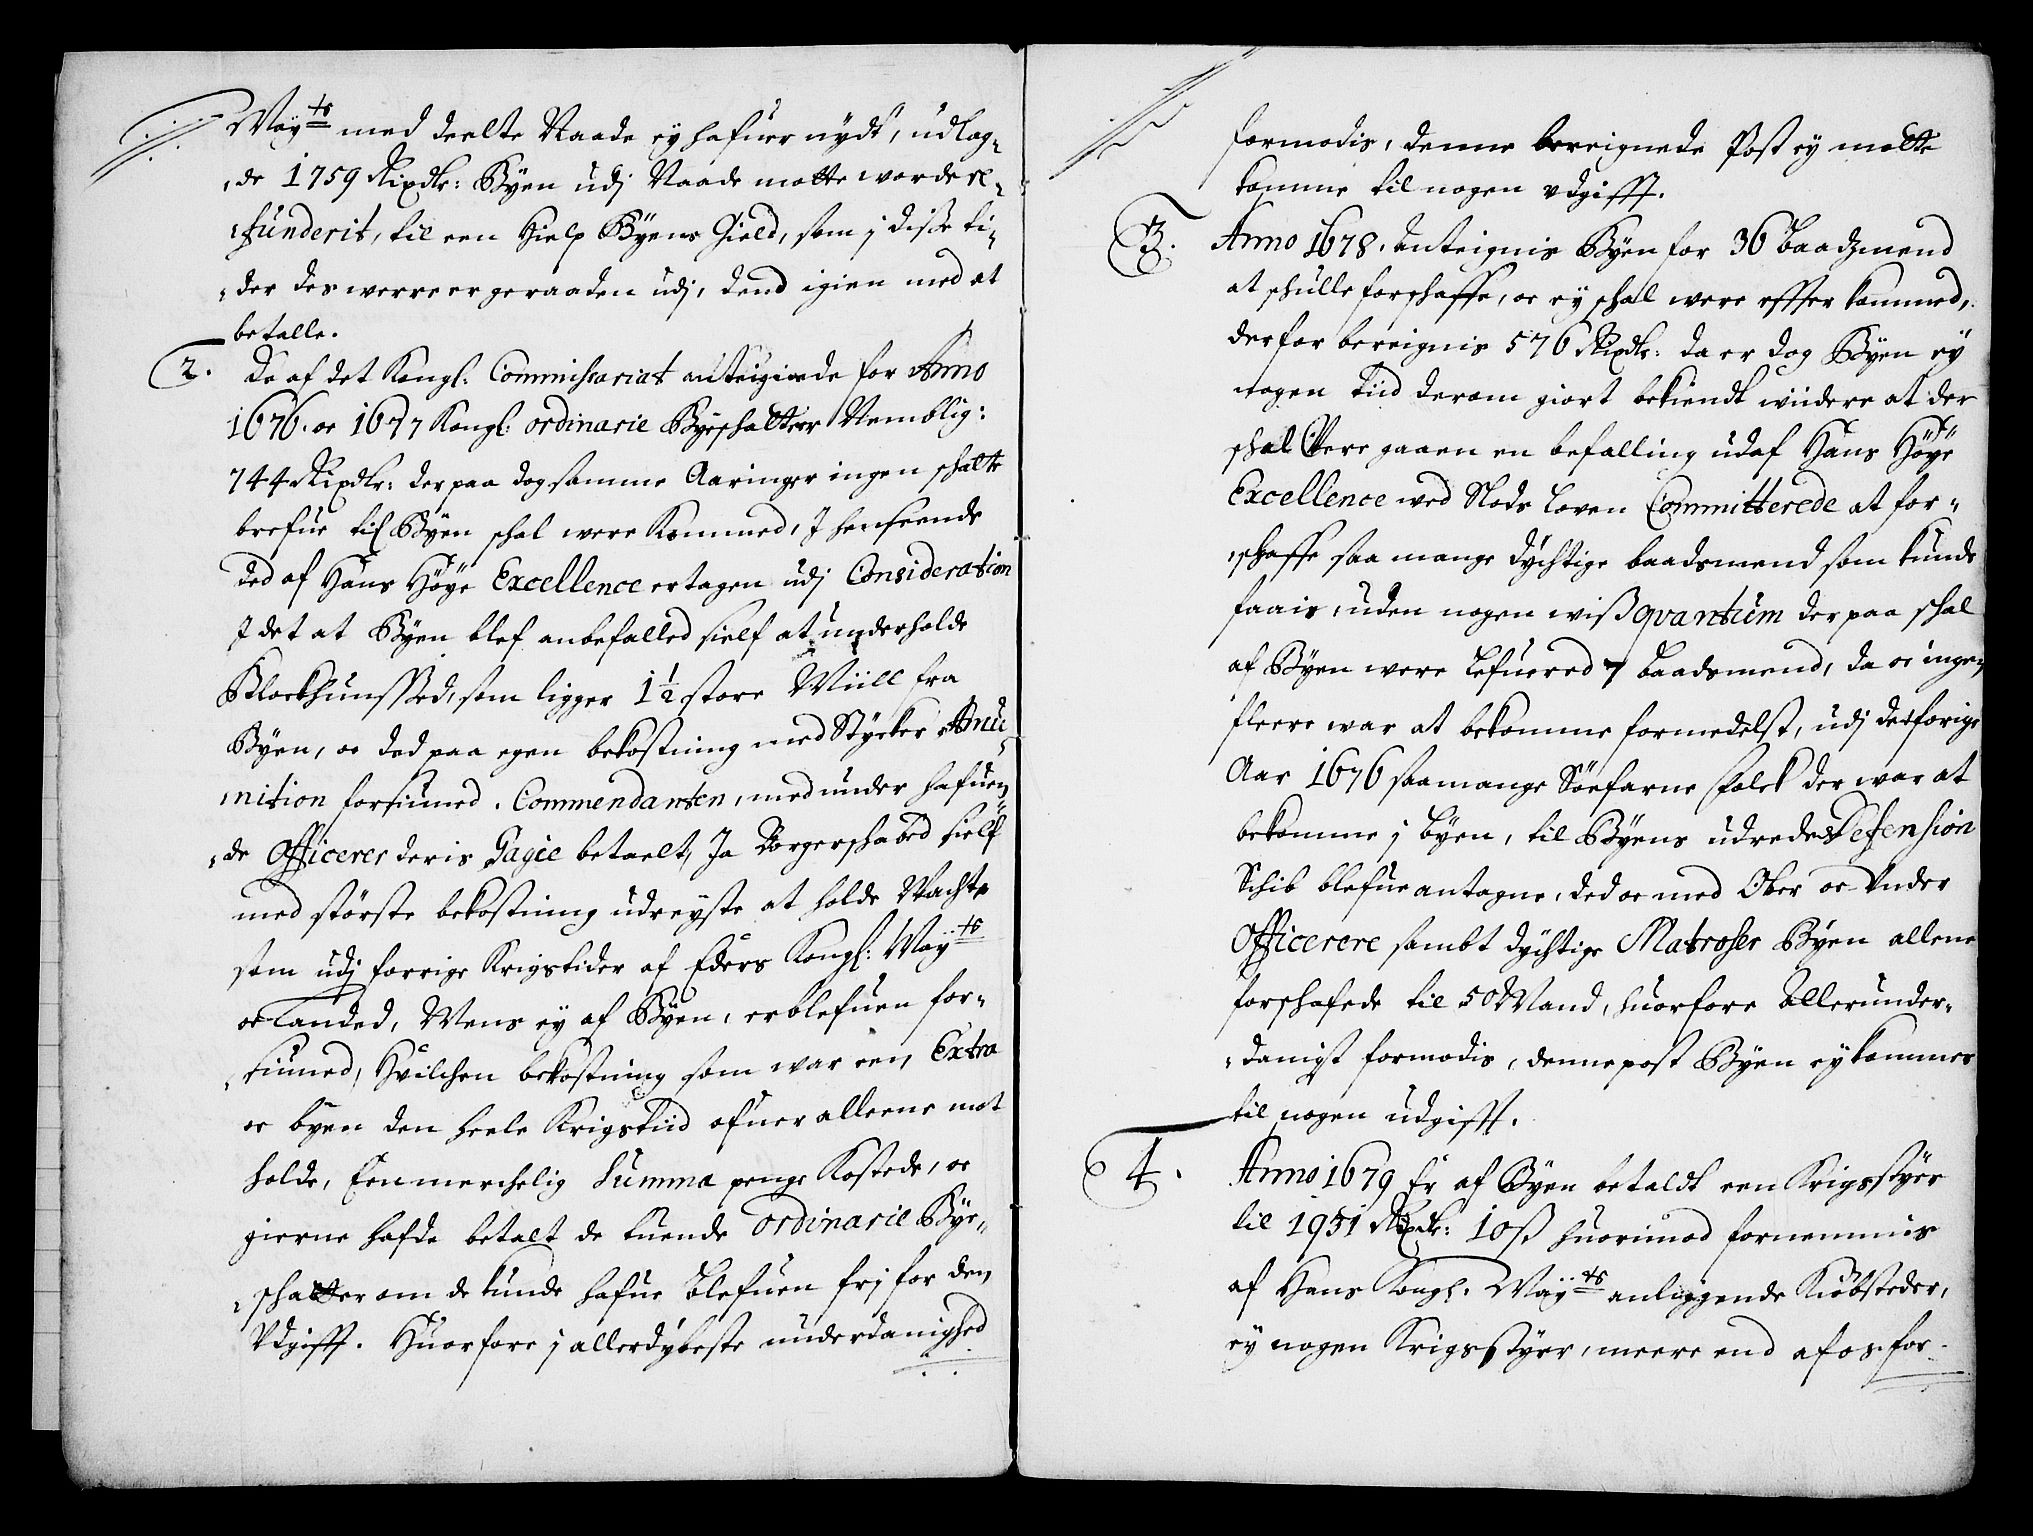 Mayts med deelte Naade ey hafuer nydt, udlag-
de 1759 Rixdlr: Byen udj Naade motte worde re-
funderit, til een Hielp Byens Gield, som j disse ti-
der des werre er geraaden udj, dend igien med at
betalle.
2. De af det Kongl: Commissariat anteignede for Anno
1676. oc 1677 Kongl: ordinarie Byeschatter Nemblig:
744 Rixdlr: der paa dog samme Aaringer ingen schatte
brefue til Byen schal were Kommed, J henseende
ded af Hans Höye Excellence er tagen udj Consideration
J det at Byen blef anbefalled sielf at underholde
Blockhuussed, som ligger 1½ store Miill fra
Byen, oc ded paa egen bekostning med Stycker Amu-
nition forsiuned. Commendanten, med under hafuen-
de Officerer deris Gagie betaelt, Ja Borgerschabed sielf
med störste bekostning udreyste at holde Wachte
som udj forrige Krigstider af Eders Kongl: Mayts
oc Landed, Mens ey af Byen, er blefuen for-
siuned, Hvilchen bekostning som war een Extra
oc byen den heele Krigstiid ofuer alleene mot
holde, Een merchelig Summa penge Kostede, oc
gierne hafde betalt de tuende ordinarie Bye-
schatter om de kunde hafue blefuen frj for den
Udgifft. Huorfore j allerdybeste underdanighed
formodis, denne bereignede Post ey motte
komme til nogen udgifft.
3. Anno 1678. Anteignis Byen for 36 Baadzmend
at schulle forschaffe, oc ey schal were effterkommed,
derfor bereignis 576 Rixdlr: da er dog Byen ey
nogen tiid derom giort bekiendt wiidere at der
schal Were gaaen en befalling ud af Hans Höye
Excellence wed Slods Loven Committerede at for-
schaffe saa mange dychtige baadsmend som kunde
faais, uden nogen wiß qvantum der paa schal
af Byen were Lefuered 7 Baadsmend, da oc ingen
fleere war at bekomme formedelst, udj det forige
Aar 1676 saa mange Söefarne Folck der war at
bekomme j byen, til Byens udredes Defension
Schib blefue antagne, ded oc med Ober oc Under
Officerere sambt dychtige Matroser Byen allene
forschafede til 50 Mand, huorfore Allerunder-
danigst formodis, denne post Byen ey kommer
til nogen udgifft.
4. Anno 1679 Er af Byen betaldt een Krigsstyer
til 1951 Rixdr: 10 ß huorimod fornemmis
af Hans Kongl. Mayts anliggende Kiöbsteder,
ey nogen Krigsstyer, meere end af os. for-